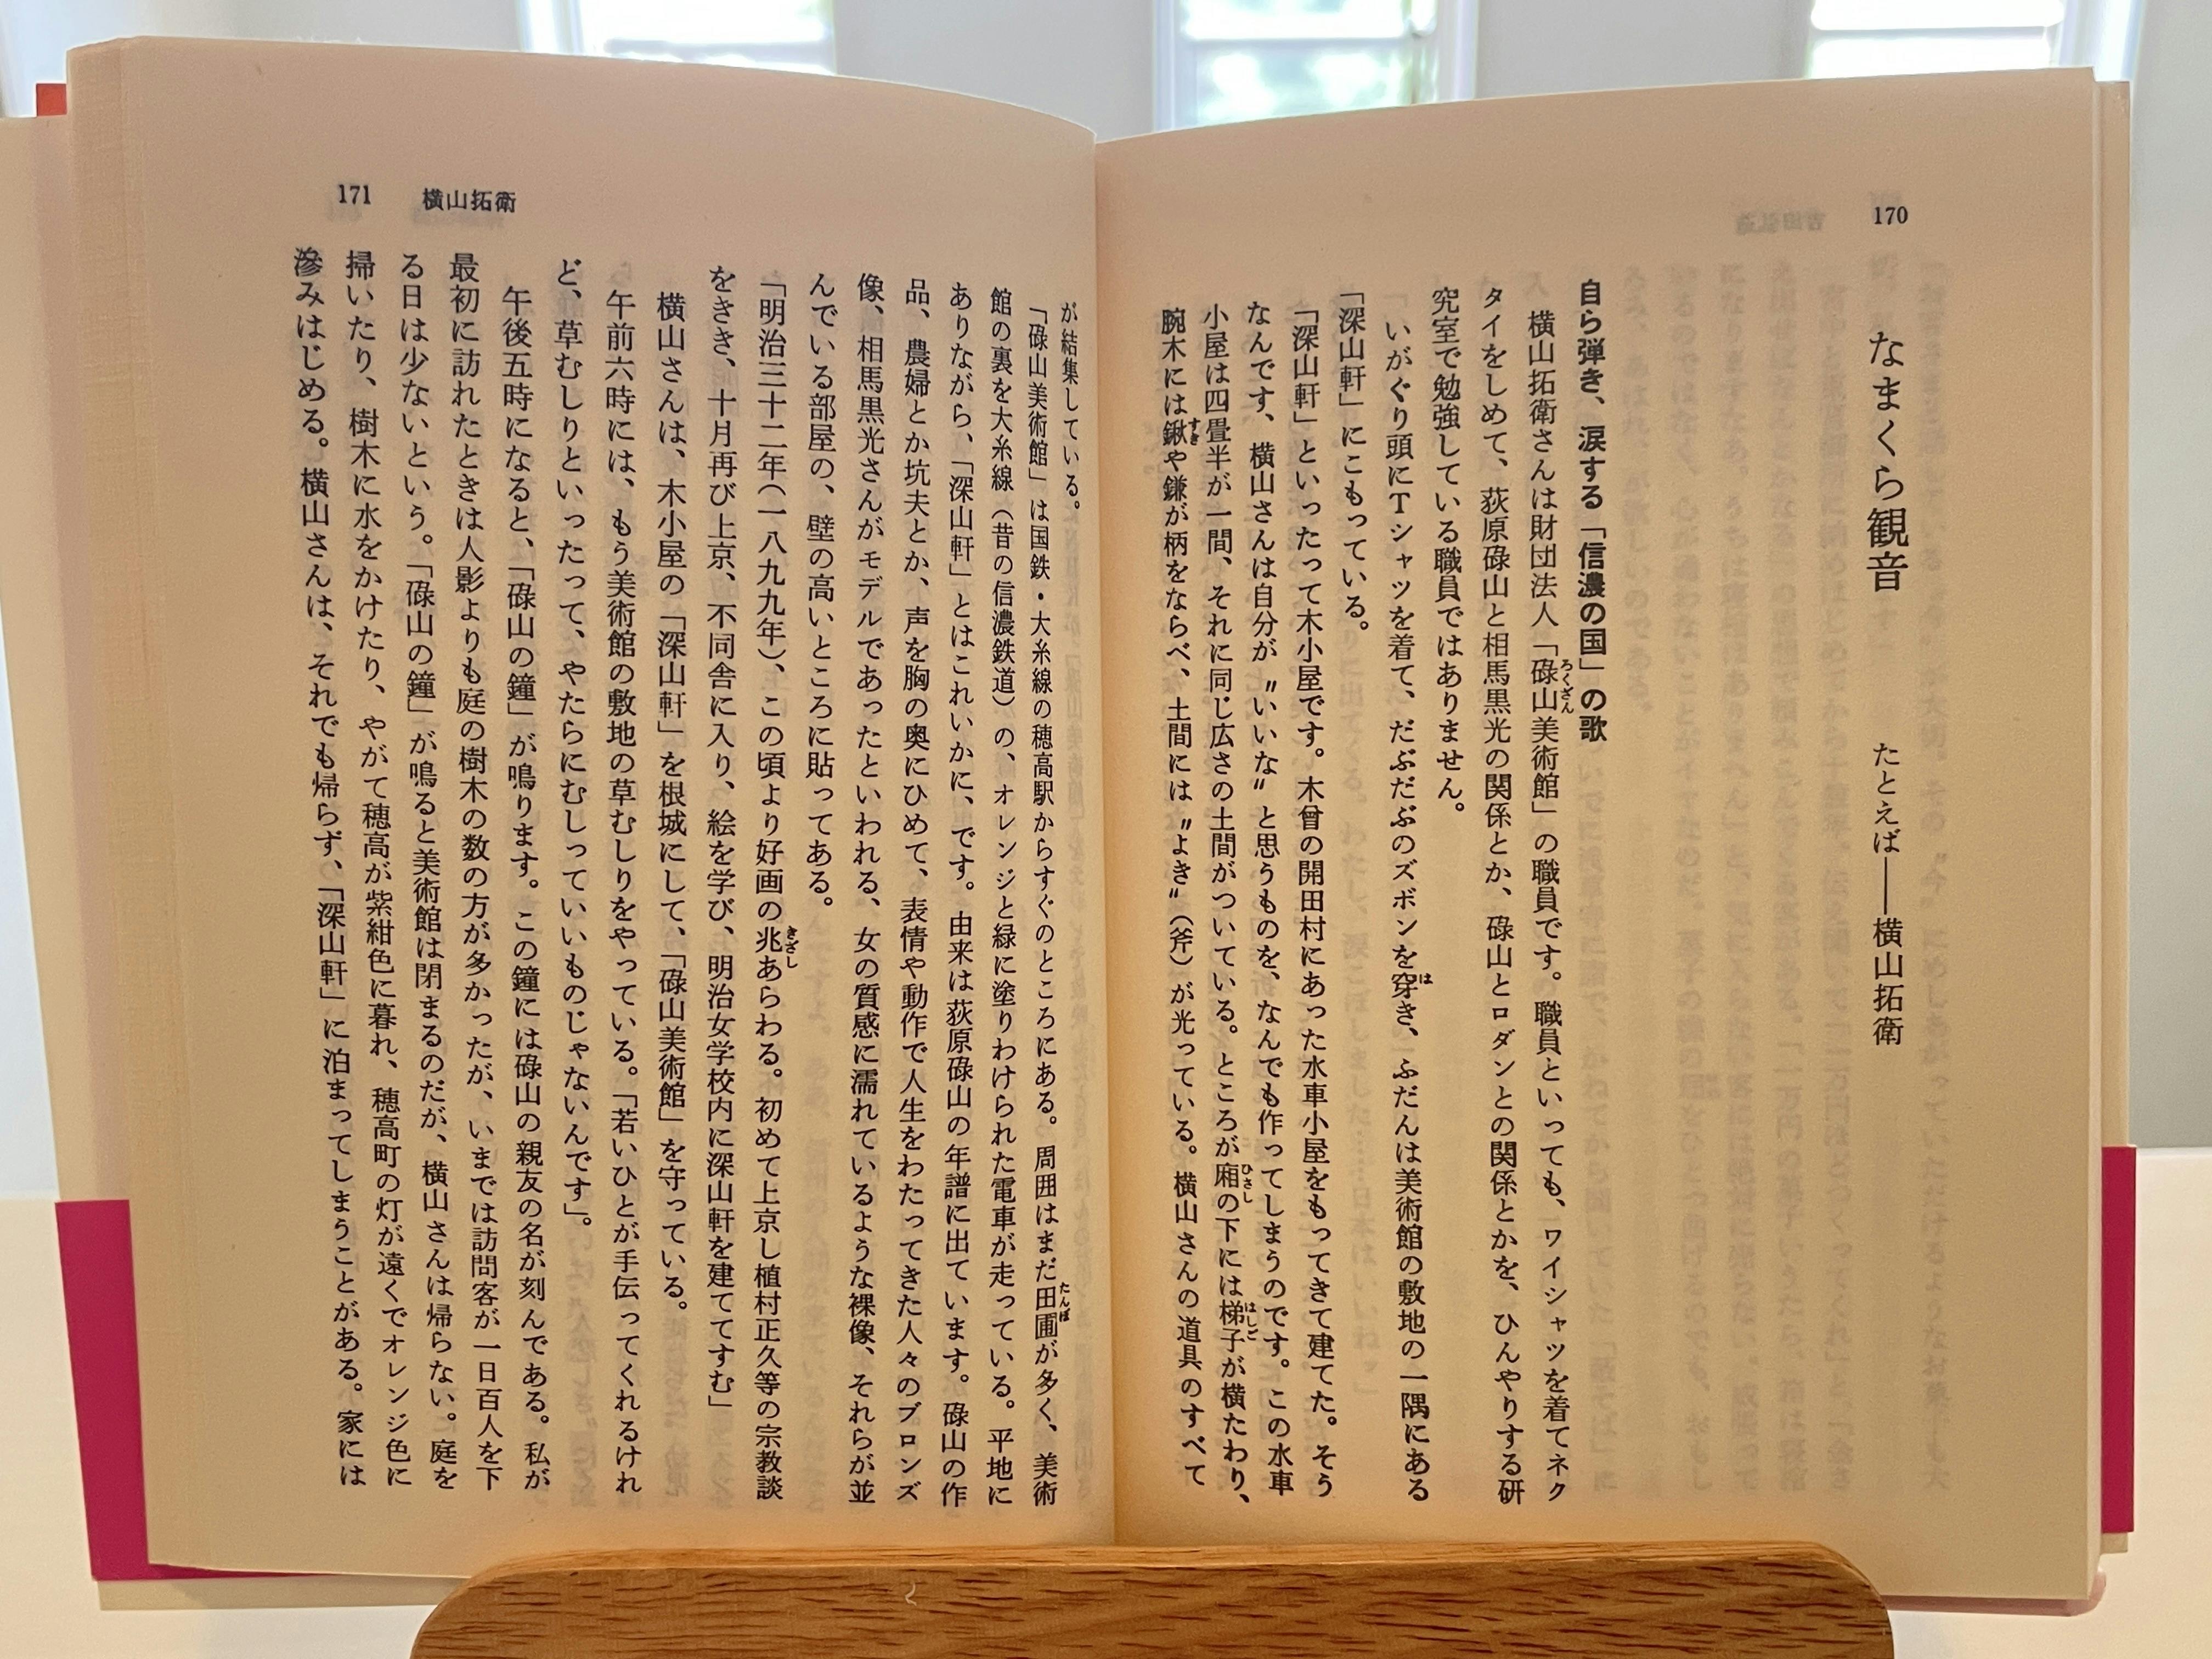 170
なまくら観音　たとえば――横山拓衛
自ら弾き、涙する「信濃の国」の歌
横山拓衛さんは財団法人「碌山美術館」の職員です。職員といっても、ワイシャツを着てネク
タイをしめて、荻原碌山と相馬黒光の関係とか、碌山とロダンとの関係とかを、ひんやりする研
究室で勉強している職員ではありません。
いがぐり頭にTシャツを着て、だぶだぶのズボンを穿き、ふだんは美術館の敷地の一隅にある
「深山軒」にこもっている。
「深山軒」といったって木小屋です。木曾の開田村にあった水車小屋をもってきて建てた。そう
なんです、横山さんは自分が〝いいな〟と思うものを、なんでも作ってしまうのです。この水車
小屋は四畳半が一間、それに同じ広さの土間がついている。ところが廂の下には梯子が横たわり、
腕木には鍬や鎌が柄をならべ、土間には〝よき〟（斧）が光っている。横山さんの道具のすべて
171　横山拓衛
が結集している。
「碌山美術館」は国鉄・大糸線の穂高駅からすぐのところにある。周囲はまだ田圃が多く、美術
館の裏を大糸線（昔の信濃鉄道）の、オレンジと緑に塗りわけられた電車が走っている。平地に
ありながら、「深山軒」とはこれいかに、です。由来は荻原碌山の年譜に出ています。碌山の作
品、農婦とか坑夫とか、声を胸の奥にひめて、表情や動作で人生をわたってきた人々のブロンズ
像、相馬黒光さんがモデルであったといわれる、女の質感に濡れているような裸像、それらが並
んでいる部屋の、壁の高いところに貼ってある。
「明治三十二年（一八九九年）、この頃より好画の兆あらわる。初めて上京し植村正久等の宗教談
をきき、十月再び上京、不同舎に入り、絵を学び、明治女学校内に深山軒を建ててすむ」
横山さんは、木小屋の「深山軒」を根城にして、「碌山美術館」を守っている。
午前六時には、もう美術館の敷地の草むしりをやっている。「若いひとが手伝ってくれるけれ
ど、草むしりといったって、やたらにむしっていいものじゃないんです」。
午後五時になると、「碌山の鐘」が鳴ります。この鐘には碌山の親友の名が刻んである。私が
最初に訪れたときは人影よりも庭の樹木の数の方が多かったが、いまでは訪問客が一日百人を下
る日は少ないという。「碌山の鐘」が鳴ると美術館は閉まるのだが、横山さんは帰らない。庭を
掃いたり、樹木に水をかけたり、やがて穂高が紫紺色に暮れ、穂高町の灯が遠くでオレンジ色に
滲みはじめる。横山さんは、それでも帰らず、「深山軒」に泊まってしまうことがある。家には